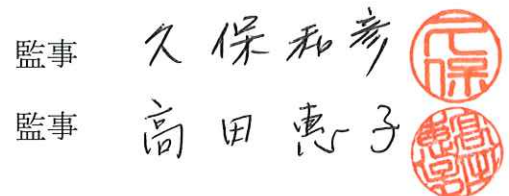 監事 久保和彦 久保
監事 高田惠子